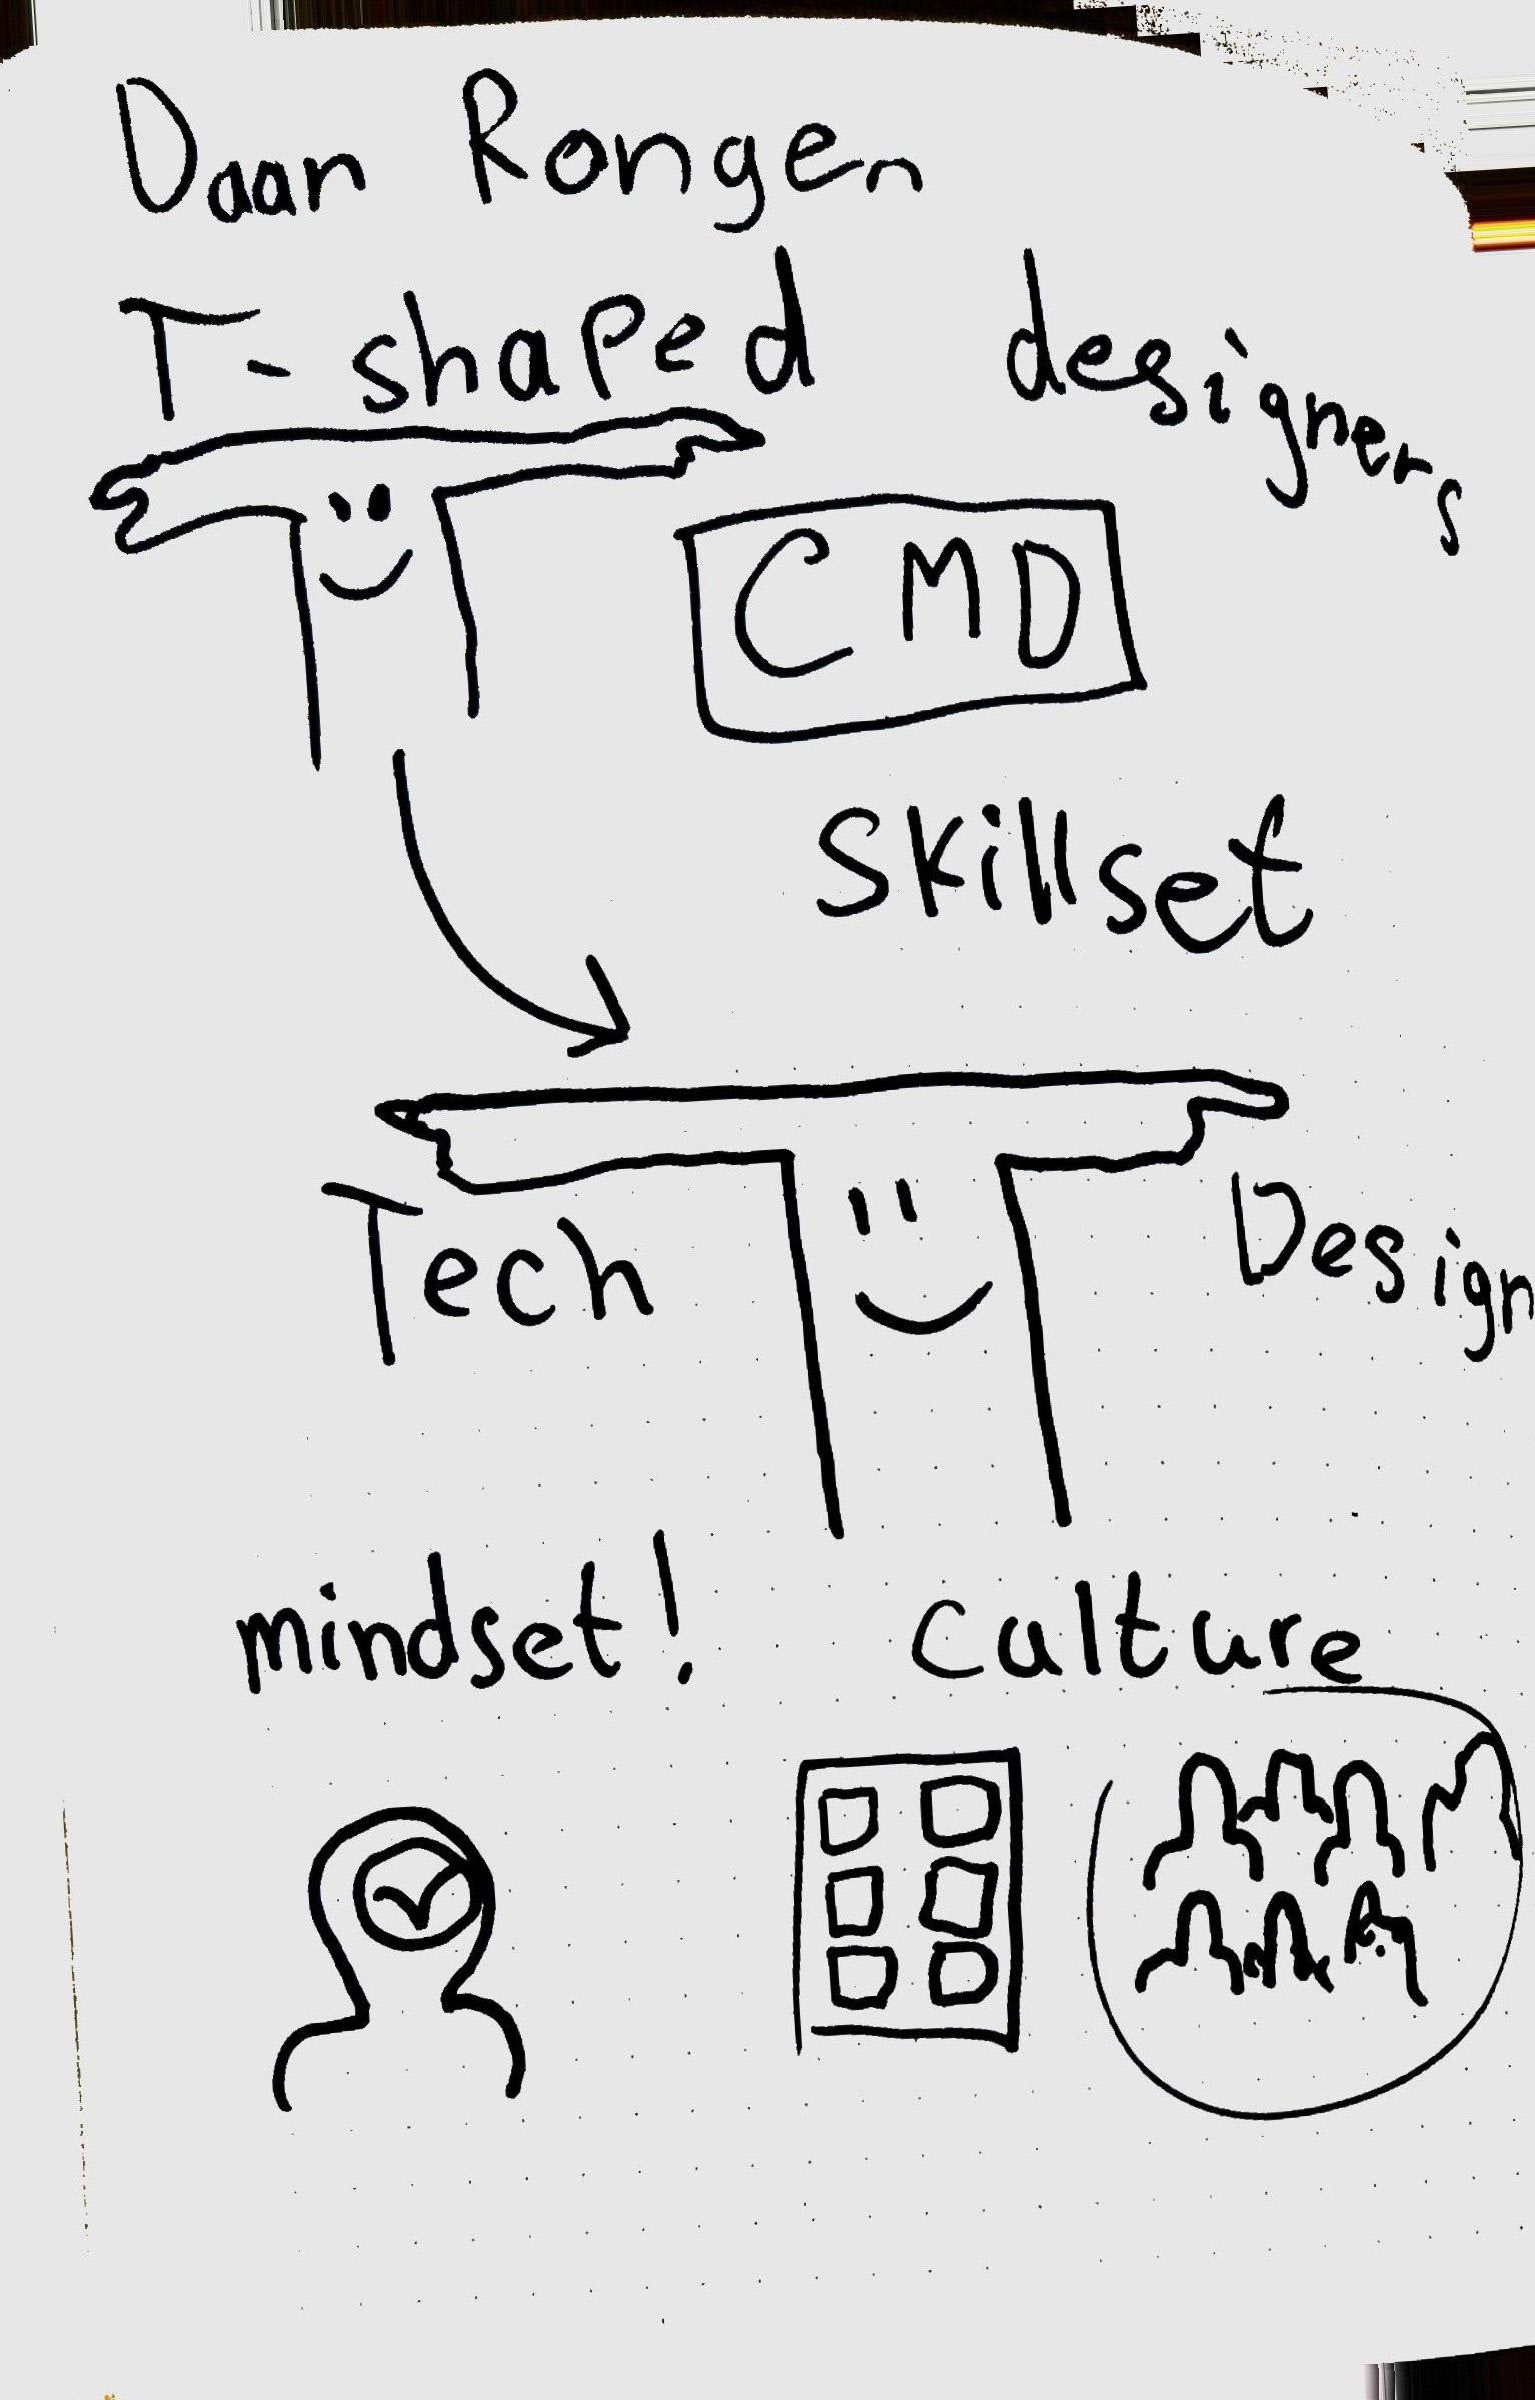 Daan Rongen
T-shaped designers
CMD
Skillset
Tech Design
mindset! culture